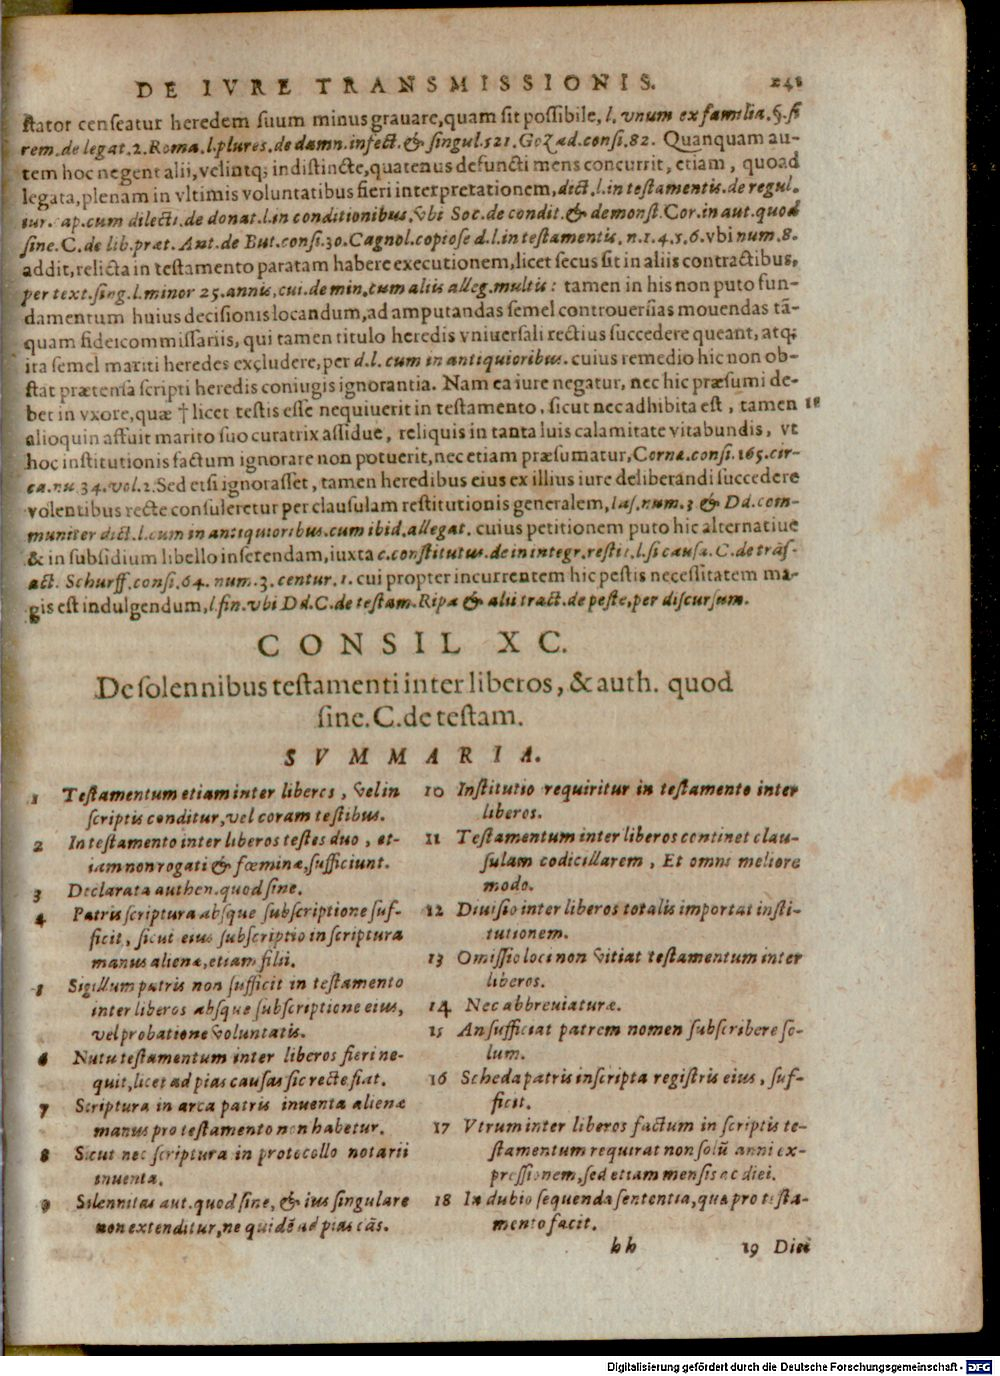 DE IVRE TRANSMISSIONIS. 241
stator censeatur heredem suum minus grauare, quam sit possibile, l. vnum ex familia. §. si
rem. de legat. 2. Roma. l. plures. de damn. infect. & singul. 521. Gozad. consi. 82. Quanquam au-
tem hoc negent alii, velintq; indistincte, quatenus defuncti mens concurrit, etiam, quoad
legata, plenam in vltimis voluntatibus fieri interpretationem, dict. l. in testamentis. de regul.
iur. cap. cum dilecti. de donat. l. in conditionibus. vbi Soc. de condit. & demonst. Cor. in aut. quod
sine. C. de lib. præt. Ant. de But. consi. 30. Cagnol. copiose d. l. in testamentis. n. 1. 4. 5. 6. vbi num. 8.
addit, relicta in testamento paratam habere executionem, licet secus sit in aliis contractibus,
per text. sing. l. minor 25. annis, cui. de min. cum aliis alleg. multis: tamen in his non puto fun-
damentum huius decisionis locandum, ad amputandas semel controuersias mouendas tã-
quam fideicommissariis, qui tamen titulo heredis vniuersali rectius succedere queant, atq;
ita semel mariti heredes excludere, per d. l. cum in antiquioribus. cuius remedio hic non ob-
stat prætensa scripti heredis coniugis ignorantia. Nam ea iure negatur, nec hic præsumi de-
bet in vxore, quæ † licet testis esse nequiuerit in testamento, sicut nec adhibita est, tamen 18
alioquin affuit marito suo curatrix assidue, reliquis in tanta luis calamitate vitabundis, vt
hoc institutionis factum ignorare non potuerit, nec etiam præsumatur, Corne. consi. 165. cir-
ca. nu. 34. vol. 2. Sed etsi ignorasset, tamen heredibus eius ex illius iure deliberandi succedere
volentibus recte consuleretur per clausulam restitutionis generalem, Ias. num. 3 & Dd. com-
muniter dict. l. cum in antiquioribus. cum ibid. allegat. cuius petitionem puto hic alternatiue
& in subsidium libello inserendam, iuxta c. constitutus. de in integr. restit. l. si causa. C. de trãs-
act. Schurff. consi. 64. num. 3. centur. 1. cui propter incurrentem hic pestis necessitatem ma-
gis est indulgendum, l. fin. vbi Dd. C. de testam. Ripa & alii tract. de peste, per discursum.
CONSIL XC.
De solennibus testamenti inter liberos, & auth. quod
sine. C. de testam.
SVMMARIA.
1 Testamentum etiam inter liberos, vel in
scriptis conditur, vel coram testibus.
2 In testamento inter liberos testes duo, et-
iam non rogati & fœminæ, sufficiunt.
3 Declarata authen. quod sine.
4 Patris scriptura absque subscriptione suf-
ficit, sicut eius subscriptio in scriptura
manus alienæ, etiam filii.
5 Sigillum patris non sufficit in testamento
inter liberos absque subscriptione eius,
vel probatione voluntatis.
6 Nutu testamentum inter liberos fieri ne-
quit, licet ad pias causas sic recte fiat.
7 Scriptura in arca patris inuenta alienæ
manus pro testamento non habetur.
8 Sicut nec scriptura in protocollo notarii
inuenta.
9 Solennitas aut. quod sine, & ius singulare
non extenditur, ne quidẽ ad pias cãs.
10 Institutio requiritur in testamento inter
liberos.
11 Testamentum inter liberos continet clau-
sulam codicillarem, Et omni meliore
modo.
12 Diuisio inter liberos totalis importat insti-
tutionem.
13 Omissio loci non vitiat testamentum inter
liberos.
14 Nec abbreuiaturæ.
15 An sufficiat patrem nomen subscribere so-
lum.
16 Scheda patris inscripta registris eius, suf-
ficit.
17 Vtrum inter liberos factum in scriptis te-
stamentum requirat non solũ anni ex-
pressionem, sed etiam mensis ac diei.
18 In dubio sequenda sententia, quæ pro testa-
mento facit.
hh 19 Diei
Digitalisierung gefördert durch die Deutsche Forschungsgemeinschaft - DFG